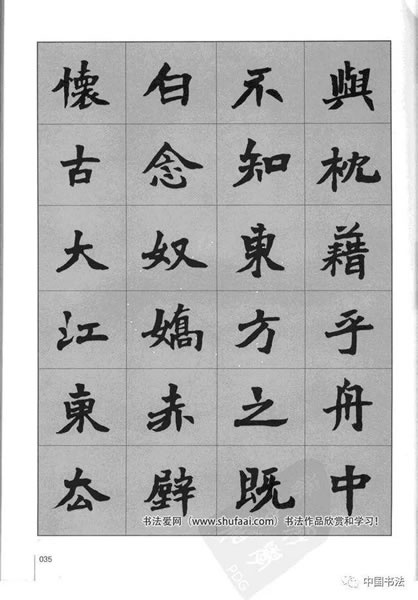 與枕藉乎舟中
不知東方之既
白念奴嬌赤壁
懷古大江東厺
书法爱网（www.shufaai.com）书法作品欣赏和学习！
035
PDG
中国书法